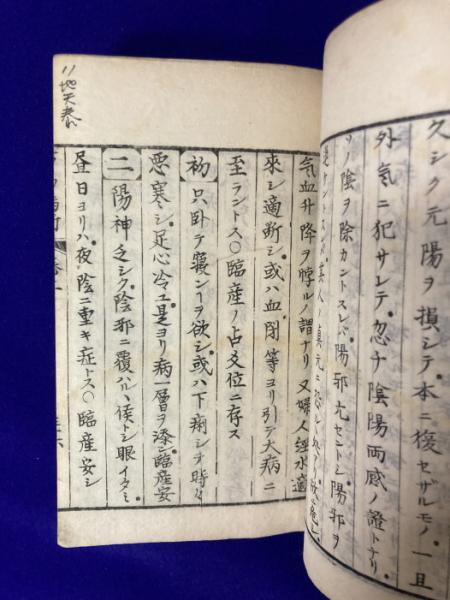 クシク元陽ヲ損シテ本ニ復セザルモノ一旦
外氣ニ犯サレテ忽チ陰陽両感ノ證トナリ
ノ陰ヲ除カントスレバ陽邪亢セントシ陽邪ヲ
氣血升降ヲ悖ルノ謂ナリ又婦人經水適
來シ適断シ或ハ血閉等ヨリ引テ大病ニ
至ラントス○臨産ノ占爻位ニ存ス
初 只臥テ寝ンヿヲ欲シ或ハ下痢シオ時々
悪寒シ足心冷ユ是ヨリ病一層ヲ添ン臨産安
二 陽神乏シク陰邪ニ覆ハル、候トシ眼イタミ
昼日ヨリハ夜陰ニ重キ症トス○臨産安シ
11 地天泰